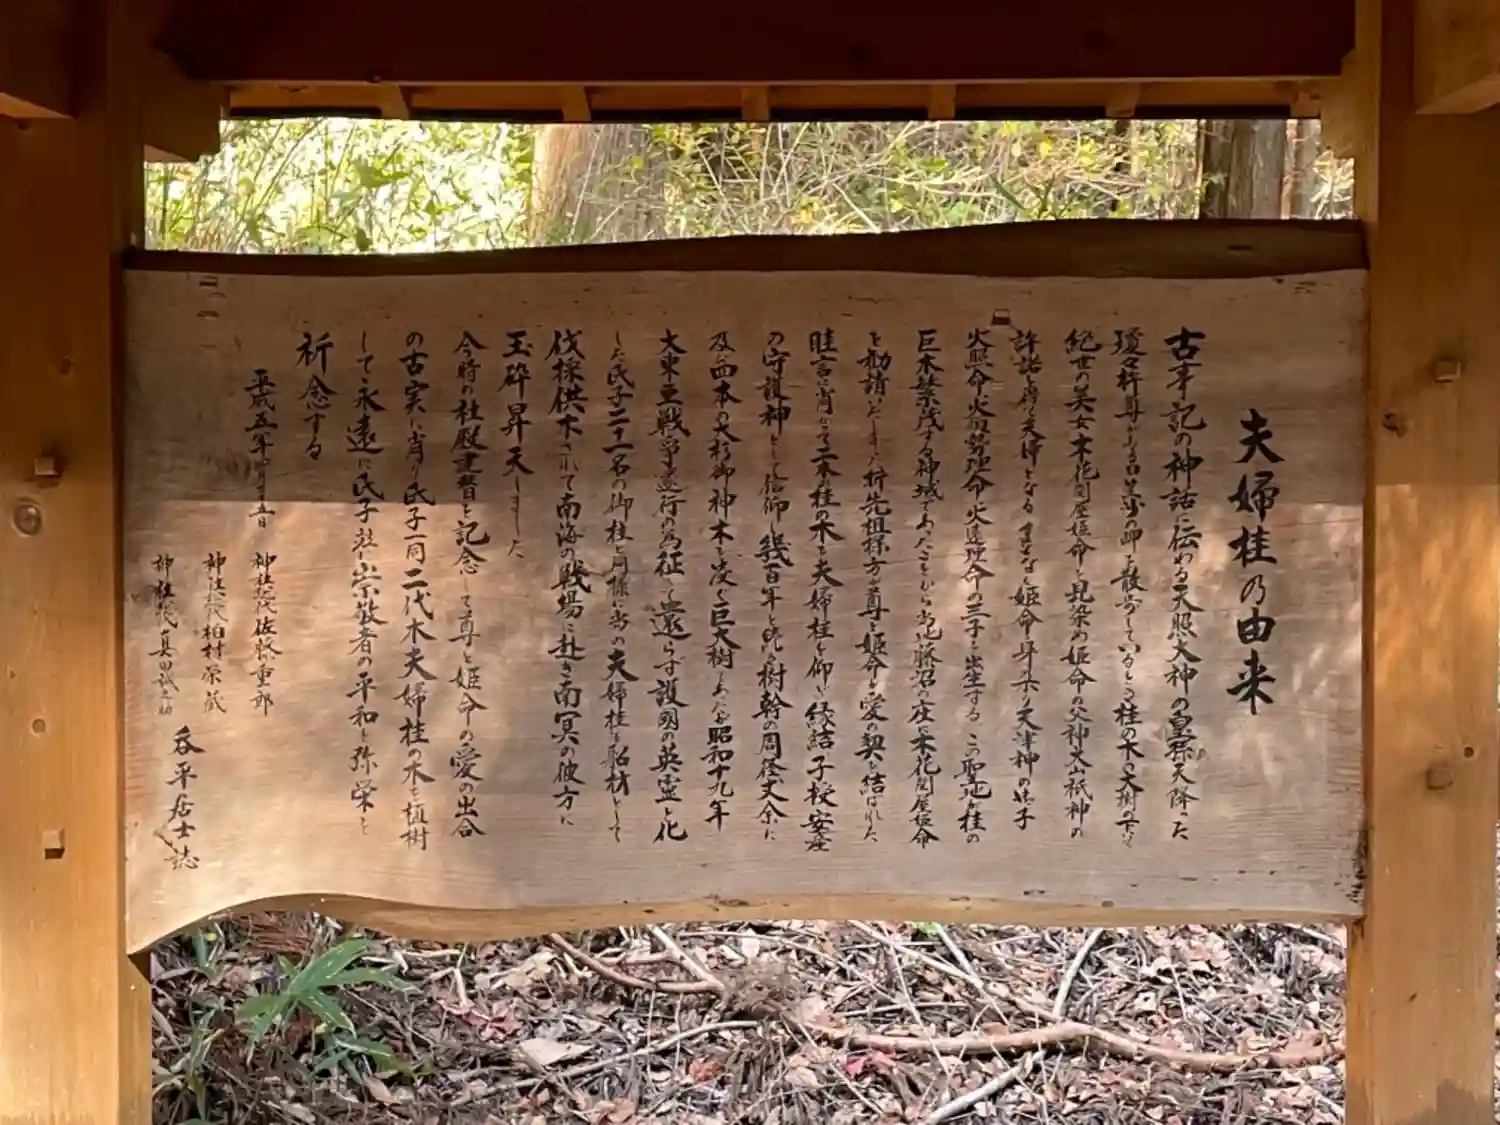 夫婦桂の由来
古事記の神話に伝わる天照大神の皇孫天降った
瓊々杵尊がある日笠沙の岬を散歩しているとき桂の木の大樹の下で
絶世の美女木花開屋姫命を見染め姫命の父神大山祇神の
許諾を得て夫婦となる まもなく姫命は天津神の御子
火照命火須勢理命火遠理命の三子を出生する この聖地は桂の
巨木繁茂する神域であったことから当地藤沼の庄に木花開屋姫命
を勧請いたしました 祈先祖様方が尊と姫命と愛の契を結ばれた
故言に肖かって二本の桂の木を夫婦桂と仰いで縁結 子授 安産
の守護神として信仰し幾百年を経た樹幹の周径丈余に
及 本の大杉御神木を凌ぐ巨大樹であったが昭和十九年
大東亜戦争遂行の為征って還らず護国の英霊と化
した氏子二十一名の御柱と同様に当の夫婦桂も船材として
伐採供木されて南海の戦場に赴き南冥の彼方に
玉砕昇天しました
今時の社殿建替を記念して尊と姫命の愛の出合
の古実に肖り氏子一同二代木夫婦桂の木を植樹
して永遠に氏子並崇敬者の平和と弥栄を
祈念する
平成五年 月 日
神社総代佐 重郎
神社総代柏村栄蔵
神社総代真田 之助
呑平居士誌